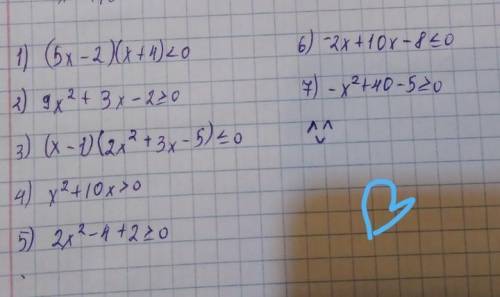 1) (5x-2)(x+4)<0
2) 9x²+3x-2≥0
3) (x-1)(2x²+3x-5)≤0
4) x²+10x>0
5) 2x²-4+2≥0
6) -2x+10x-8≤0
7) -x²+40-5≥0